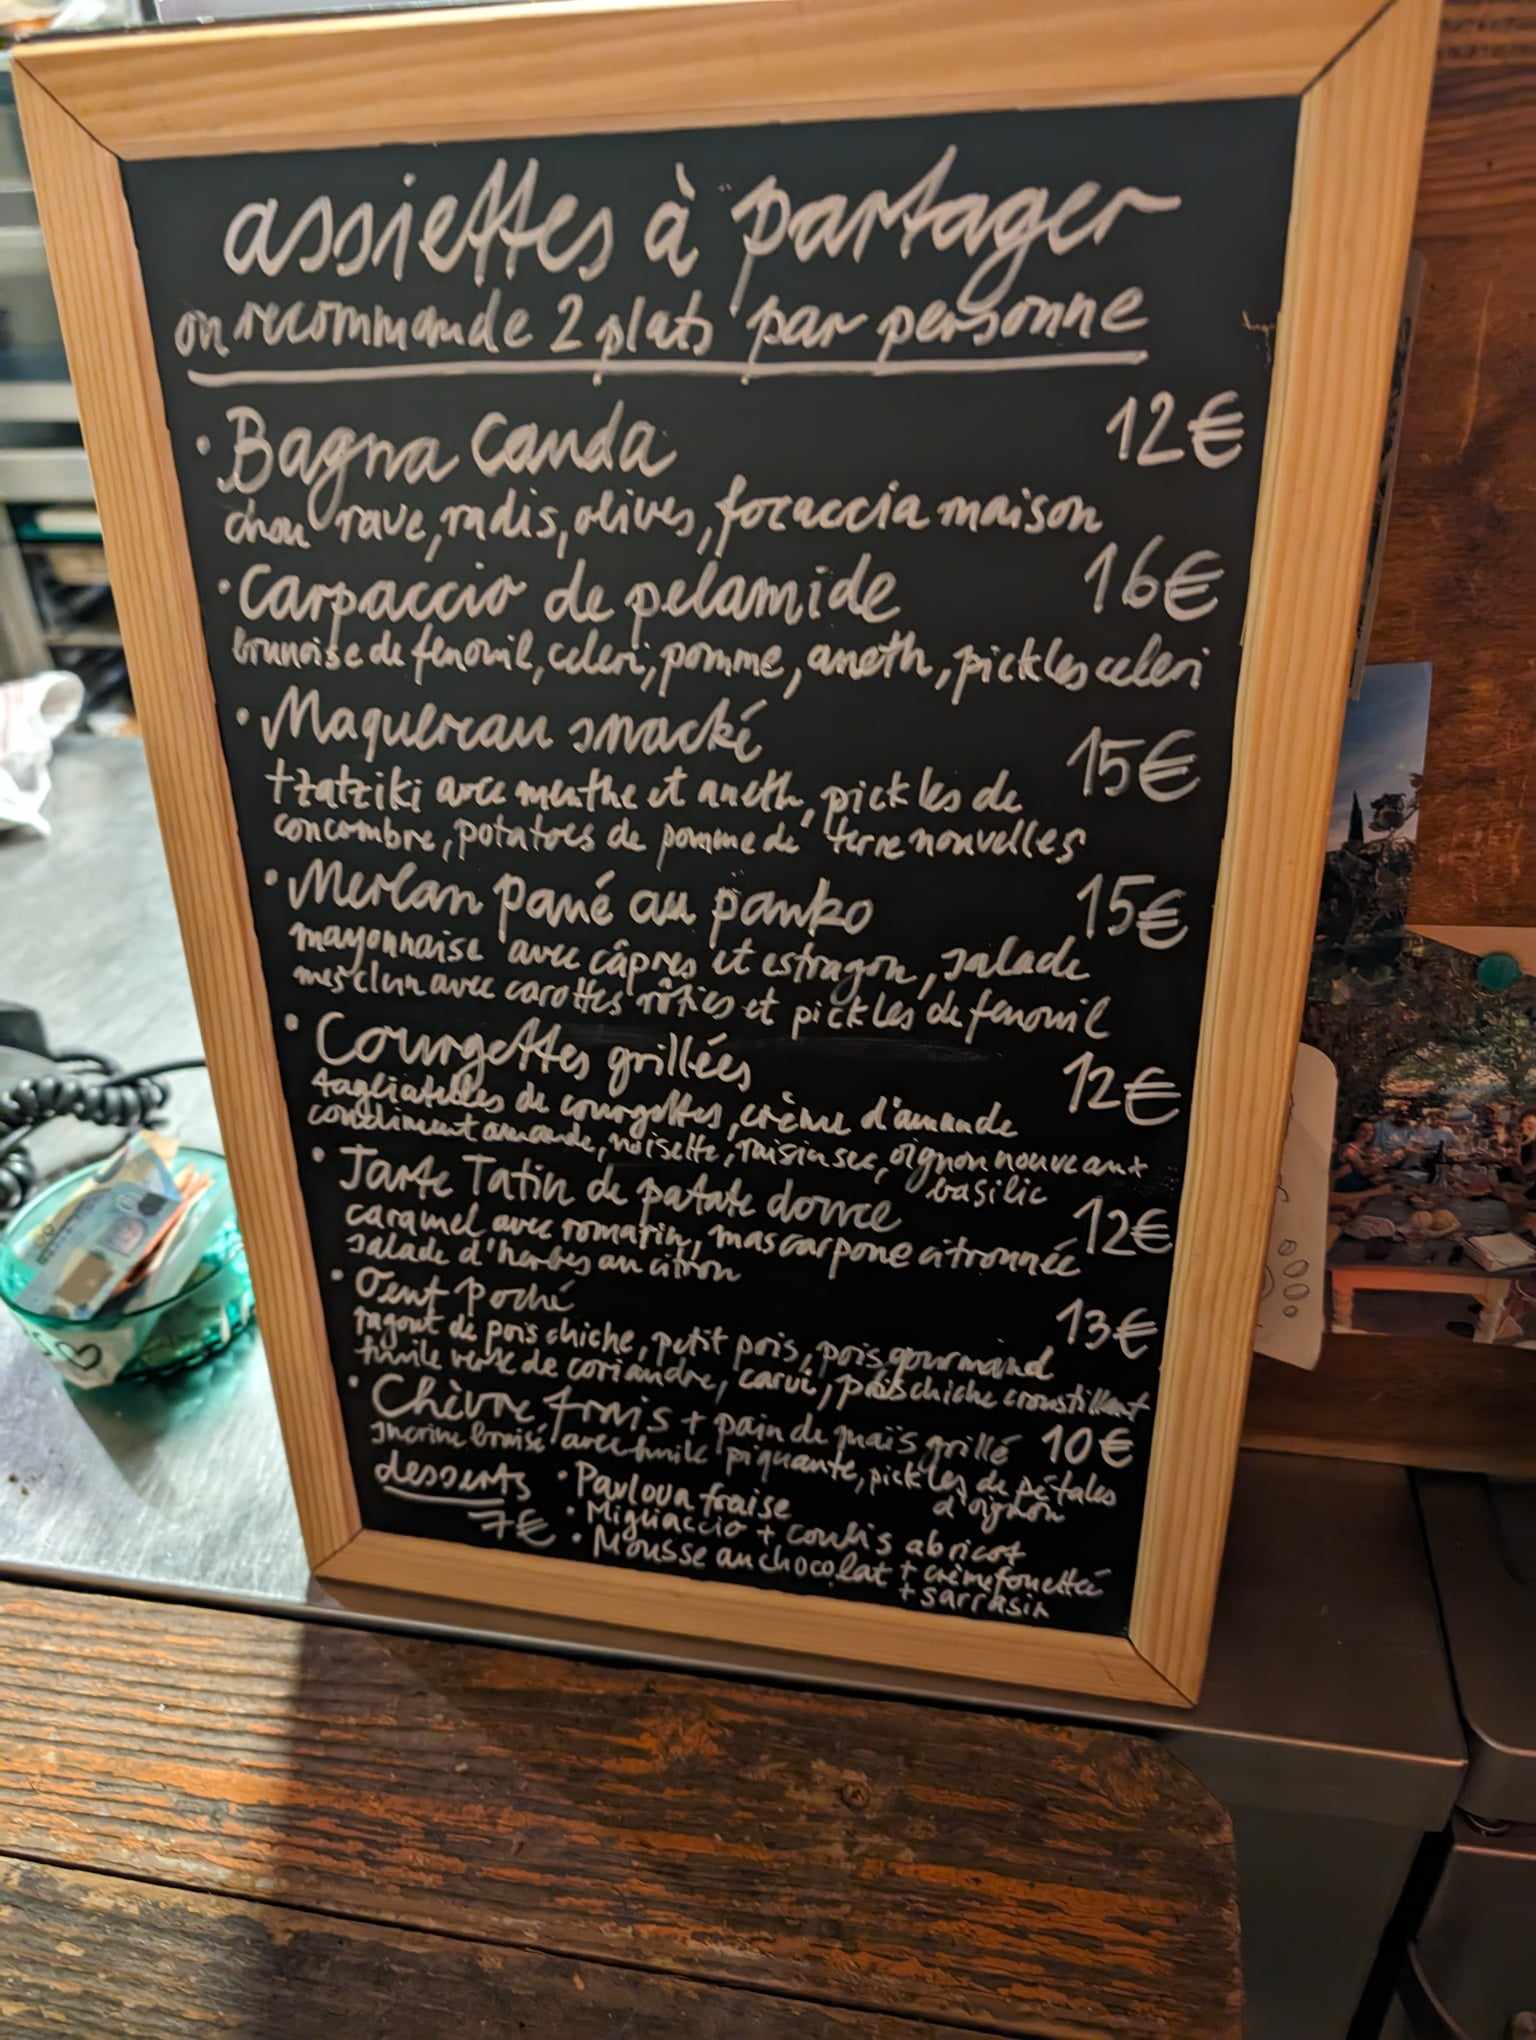 assiettes à partager
on recommande 2 plats par personne
• Bagna Cauda 12€
chou rave, radis, olives, focaccia maison
• Carpaccio de pelamide 16€
brunoise de fenouil, celeri, pomme, aneth, pickles celeri
• Maquereau snacké 15€
tzatziki avec menthe et aneth, pickles de
concombre, potatoes de pomme de terre nouvelles
• Merlan pané au panko 15€
mayonnaise avec câpres et estragon, salade
mesclun avec carottes rôties et pickles de fenouil
• Courgettes grillées 12€
tagliatelles de courgettes, crème d'amande
condiment amande, noisette, raisin sec, oignon nouveaux
basilic
• Tarte Tatin de patate douce 12€
caramel avec romarin, mascarpone citronnée
salade d'herbes au citron
• Oeuf poché 13€
ragout de pois chiche, petit pois, pois gourmand
huile verte de coriandre, carvi, pois chiche croustillant
• Chèvre frais + pain de maïs grillé 10€
sucrine braisé avec huile piquante, pickles de pétales
d'oignon
desserts • Pavlova fraise
7€ • Migliaccio + coulis abricot
• Mousse au chocolat + crème fouettée
+ sarrasin